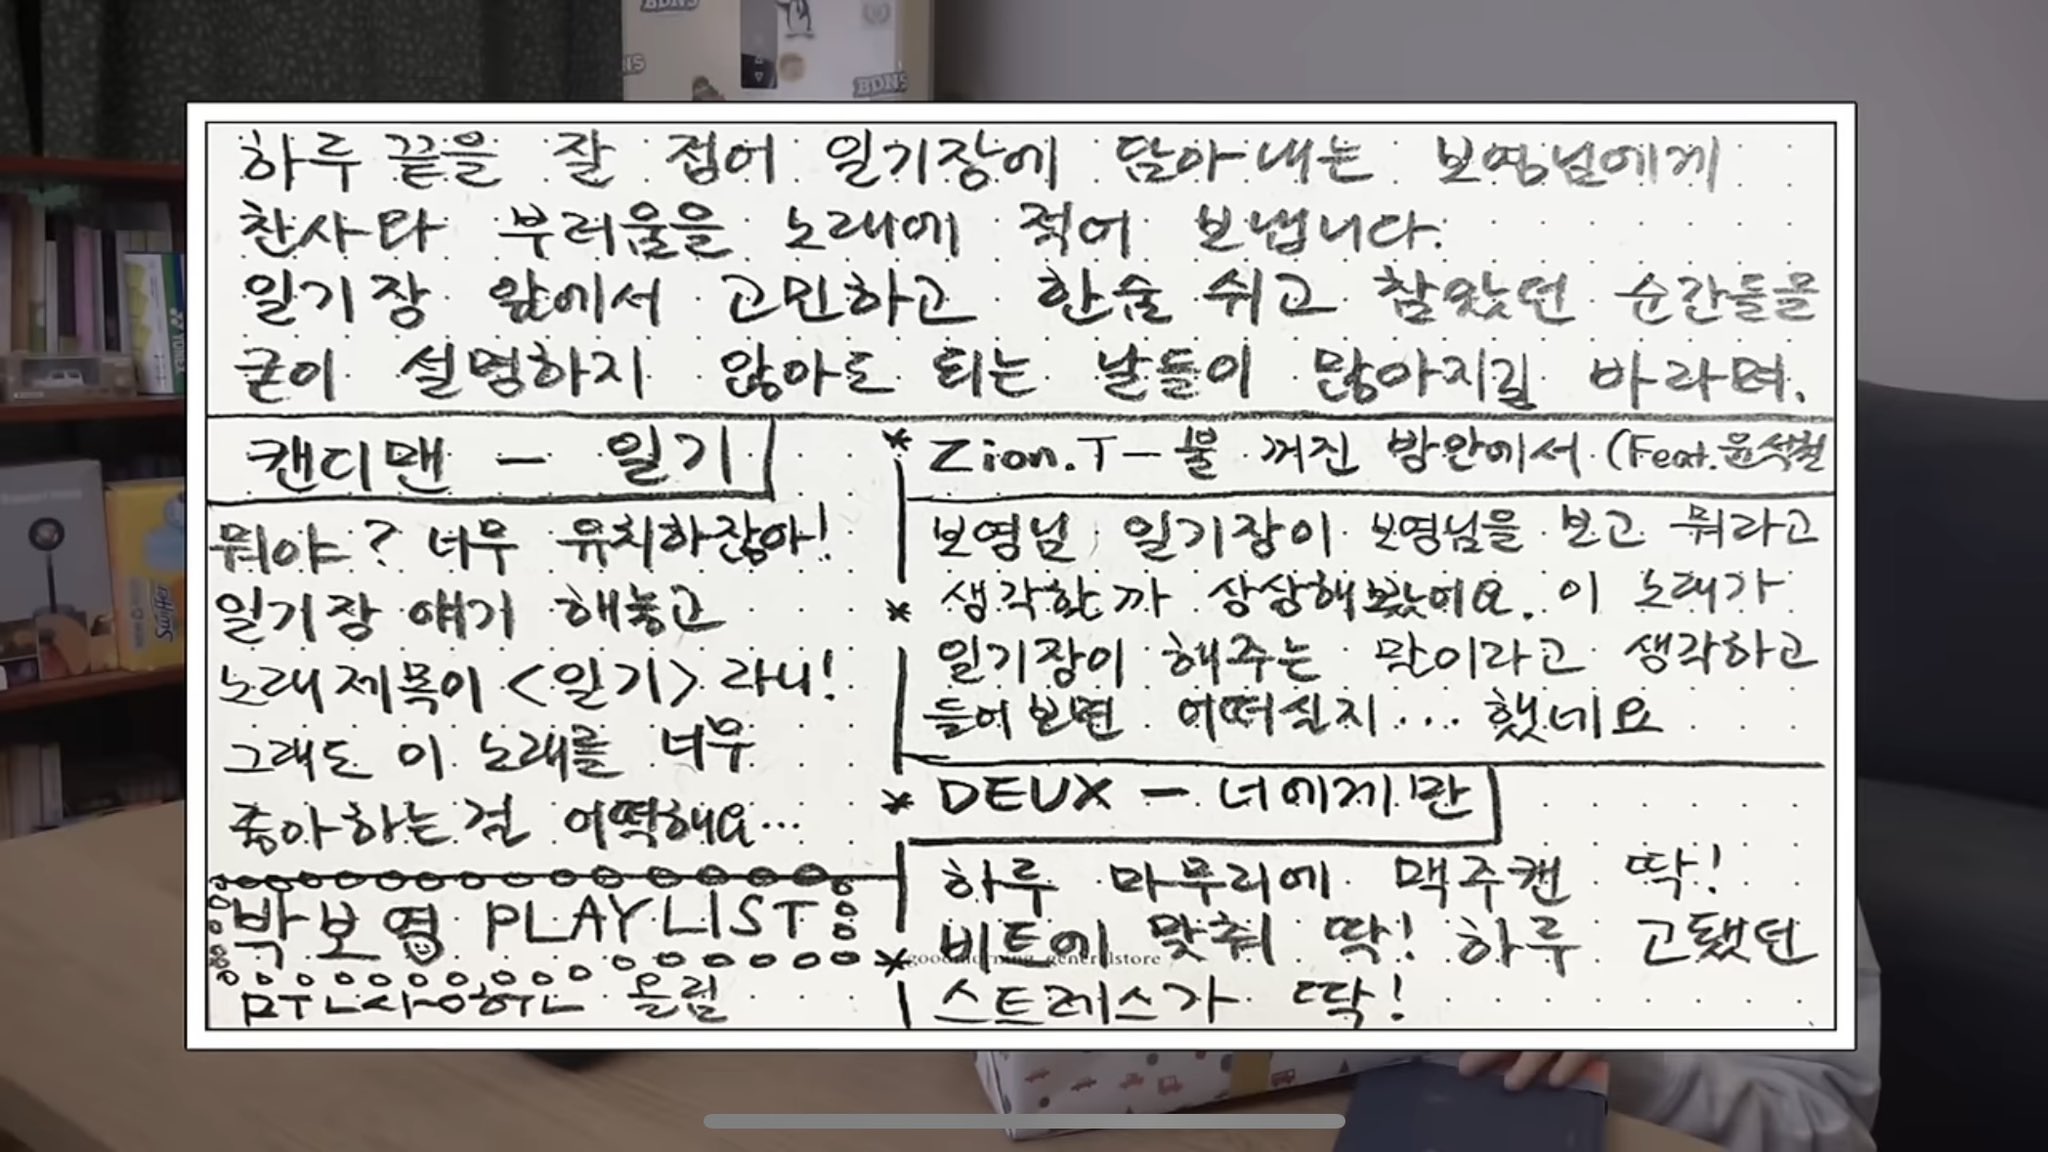 하루 끝을 잘 접어 일기장에 담아내는 보영님에게
찬사와 부러움을 노래에 적어 보냅니다.
일기장 앞에서 고민하고 한숨 쉬고 참았던 순간들을
굳이 설명하지 않아도 되는 날들이 많아지길 바라며.
캔디맨 - 일기
뭐야? 너무 유치하잖아!
일기장 얘기 해놓고
노래 제목이 <일기> 라니!
그래도 이 노래를 너무
좋아하는 걸 어떡해요...
박보영 PLAYLIST
올림
* Zion.T - 불 꺼진 방안에서 (Feat. 윤석철
보영님 일기장이 보영님을 보고 뭐라고
생각할까 상상해봤어요. 이 노래가
일기장이 해주는 말이라고 생각하고
들어보면 어떠실지... 했네요
* DEUX - 너에게만
하루 마무리에 맥주캔 딱!
비트에 맞춰 딱! 하루 고됐던
스트레스가 딱!
goodmorning_generalstore
BDNS
BDNS
YONEX
Swiffer